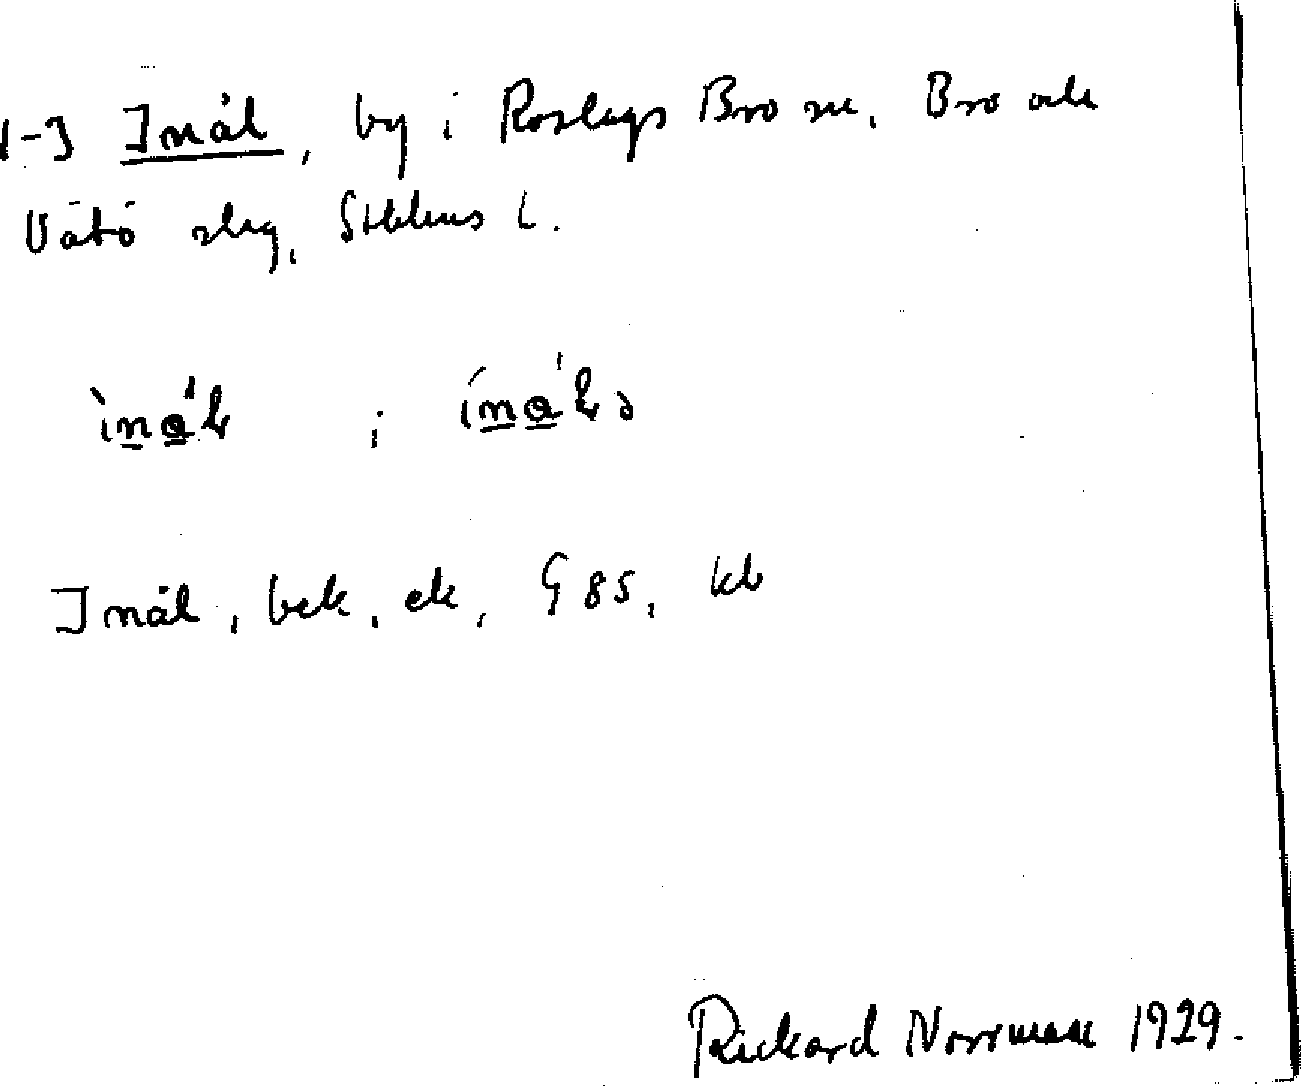 1-3 Inål, by i Roslags Bro sn, Bro och
Vätö slag, Sthlms l.
Inål, bek, ek, G 85, kb
Rickard Norrman 1929.